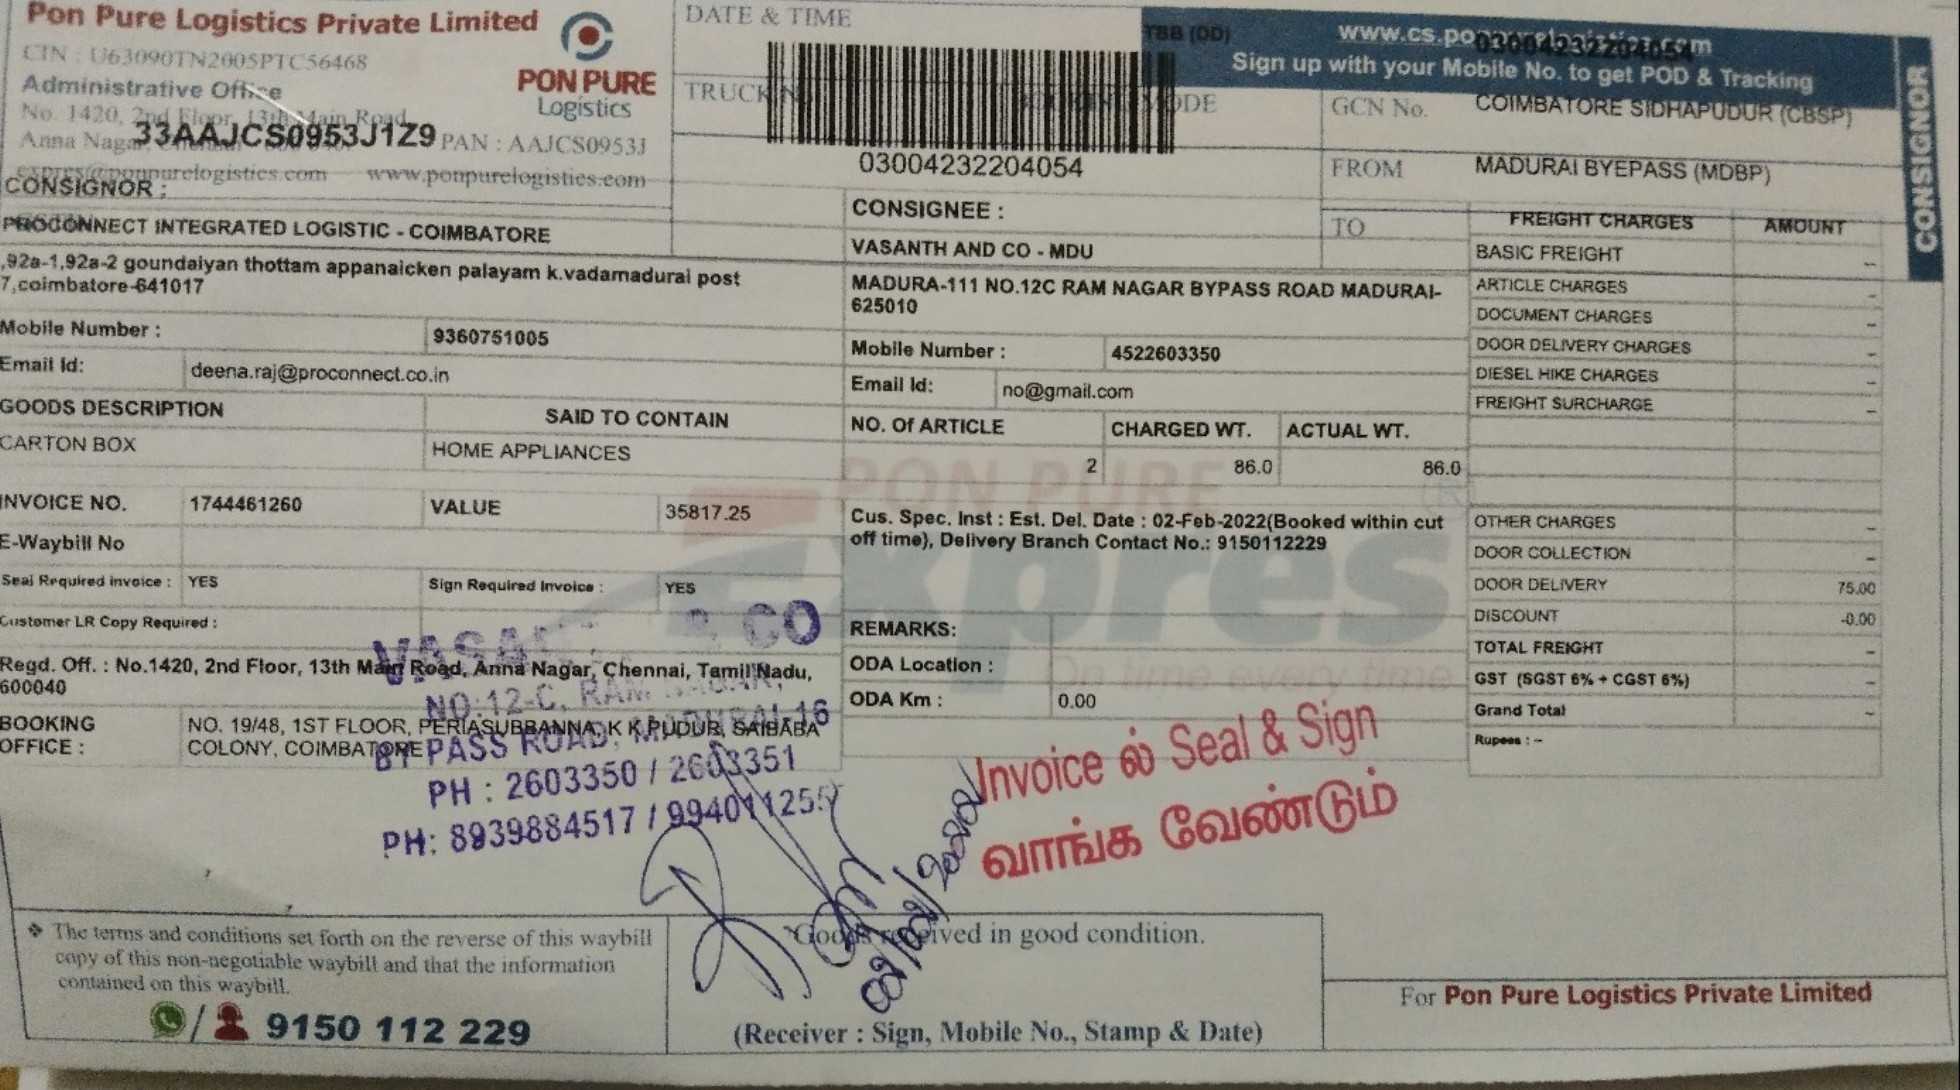 Pon Pure Logistics Private Limited
CIN : U63090TN2005PTC56468
Administrative Office
No. 1420, 2nd Floor, 13th Main Road
Anna Nagar,
33AAJCS0953J1Z9
PAN : AAJCS0953J
expres@ponpurelogistics.com www.ponpurelogistics.com
PON PURE
Logistics
DATE & TIME
TRUCK
MODE
03004232204054
TBB (DD)
www.cs.ponpurelogistics.com
03004232204054
Sign up with your Mobile No. to get POD & Tracking
GCN No. COIMBATORE SIDHAPUDUR (CBSP)
FROM MADURAI BYEPASS (MDBP)
TO
CONSIGNOR
CONSIGNOR :
PROCONNECT INTEGRATED LOGISTIC - COIMBATORE
,92a-1,92a-2 goundaiyan thottam appanaicken palayam k.vadamadurai post
7,coimbatore-641017
Mobile Number : 9360751005
Email Id: deena.raj@proconnect.co.in
GOODS DESCRIPTION SAID TO CONTAIN
CARTON BOX HOME APPLIANCES
INVOICE NO. 1744461260 VALUE 35817.25
E-Waybill No
Seal Required invoice : YES Sign Required Invoice : YES
Customer LR Copy Required :
Regd. Off. : No.1420, 2nd Floor, 13th Main Road, Anna Nagar, Chennai, Tamil Nadu,
600040
BOOKING OFFICE : NO. 19/48, 1ST FLOOR, PERIASUBBANNA, K K PUDUR, SAIBABA
COLONY, COIMBATORE
CONSIGNEE :
VASANTH AND CO - MDU
MADURA-111 NO.12C RAM NAGAR BYPASS ROAD MADURAI-
625010
Mobile Number : 4522603350
Email Id: no@gmail.com
NO. Of ARTICLE CHARGED WT. ACTUAL WT.
2 86.0 86.0
Cus. Spec. Inst : Est. Del. Date : 02-Feb-2022(Booked within cut
off time), Delivery Branch Contact No.: 9150112229
REMARKS:
ODA Location :
ODA Km : 0.00
PON PURE
Expres
On time every time
FREIGHT CHARGES AMOUNT
BASIC FREIGHT --
ARTICLE CHARGES --
DOCUMENT CHARGES --
DOOR DELIVERY CHARGES --
DIESEL HIKE CHARGES --
FREIGHT SURCHARGE --
OTHER CHARGES --
DOOR COLLECTION --
DOOR DELIVERY 75.00
DISCOUNT -0.00
TOTAL FREIGHT --
GST (SGST 6% + CGST 6%) --
Grand Total --
Rupees : --
& CO
NO:12-C, RAM NAGAR,
BY PASS ROAD, MADURAI-16
PH : 2603350 / 2603351
PH: 8939884517 /
Invoice ல் Seal & Sign
வாங்க வேண்டும்
02/02/2022
❖ The terms and conditions set forth on the reverse of this waybill
copy of this non-negotiable waybill and that the information
contained on this waybill.
/ 9150 112 229
Goods received in good condition.
(Receiver : Sign, Mobile No., Stamp & Date)
For Pon Pure Logistics Private Limited